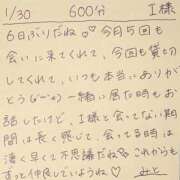 1/30 600分 I様
6日ぶりだね♡今月5回も
会いに来てくれて、今回も貸切
してくれて、いつも本当にありが
とう(˘︶˘)一緒に居た時もお
話したけど、I様と会ってない期
間は長く感じて、会ってる時は
凄く早くて不思議だね♡これからも
ずっと仲良しでいようね♡
みと